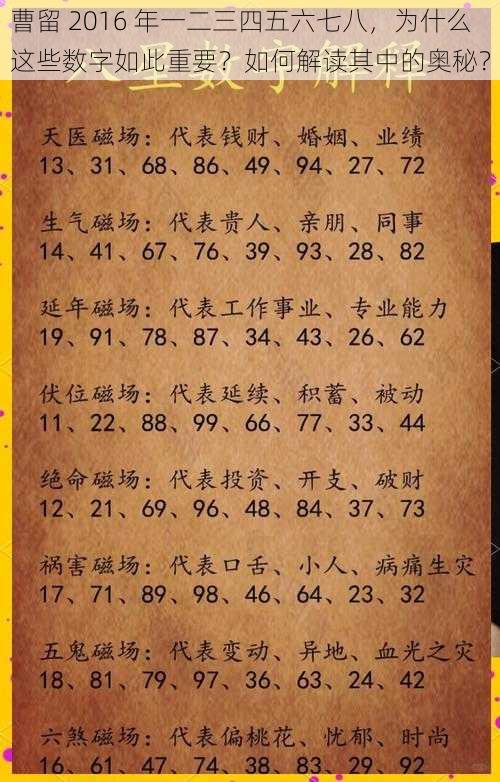 曹留 2016 年一二三四五六七八，为什么
这些数字如此重要？如何解读其中的奥秘？
八星数字解释
天医磁场：代表钱财、婚姻、业绩
13、31、68、86、49、94、27、72
生气磁场：代表贵人、亲朋、同事
14、41、67、76、39、93、28、82
延年磁场：代表工作事业、专业能力
19、91、78、87、34、43、26、62
伏位磁场：代表延续、积蓄、被动
11、22、88、99、66、77、33、44
绝命磁场：代表投资、开支、破财
12、21、69、96、48、84、37、73
祸害磁场：代表口舌、小人、病痛生灾
17、71、89、98、46、64、23、32
五鬼磁场：代表变动、异地、血光之灾
18、81、79、97、36、63、24、42
六煞磁场：代表偏桃花、忧郁、时尚
16、61、47、74、38、83、29、92